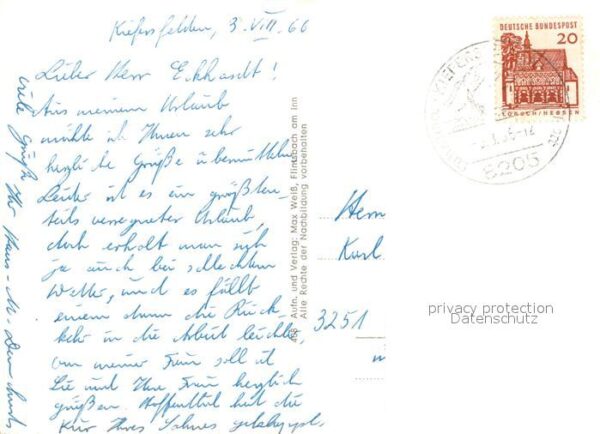 Kiefersfelden, 3. VIII. 66
Lieber Herr Eckhardt!
Aus meinem Urlaub
möchte ich Ihnen sehr
herzliche Grüße übermitteln.
Leider ist es ein größten-
teils verregneter Urlaub,
doch erholt man sich
ja auch bei schlechtem
Wetter, und es fällt
einem dann die Rück-
kehr in die Arbeit leichter.
Von meiner Frau soll ich
Sie und Ihre Frau herzlich
grüßen. Hoffentlich hat die
Kur Ihres Sohnes geklappt.
Viele Grüße Ihr Hans-
468 Aufn. und Verlag: Max Weiß, Flintsbach am Inn
Alle Rechte der Nachbildung vorbehalten
DEUTSCHE BUNDESPOST
20
LORSCH/HESSEN
8205
Herrn
Karl
3251
privacy protection
Datenschutz